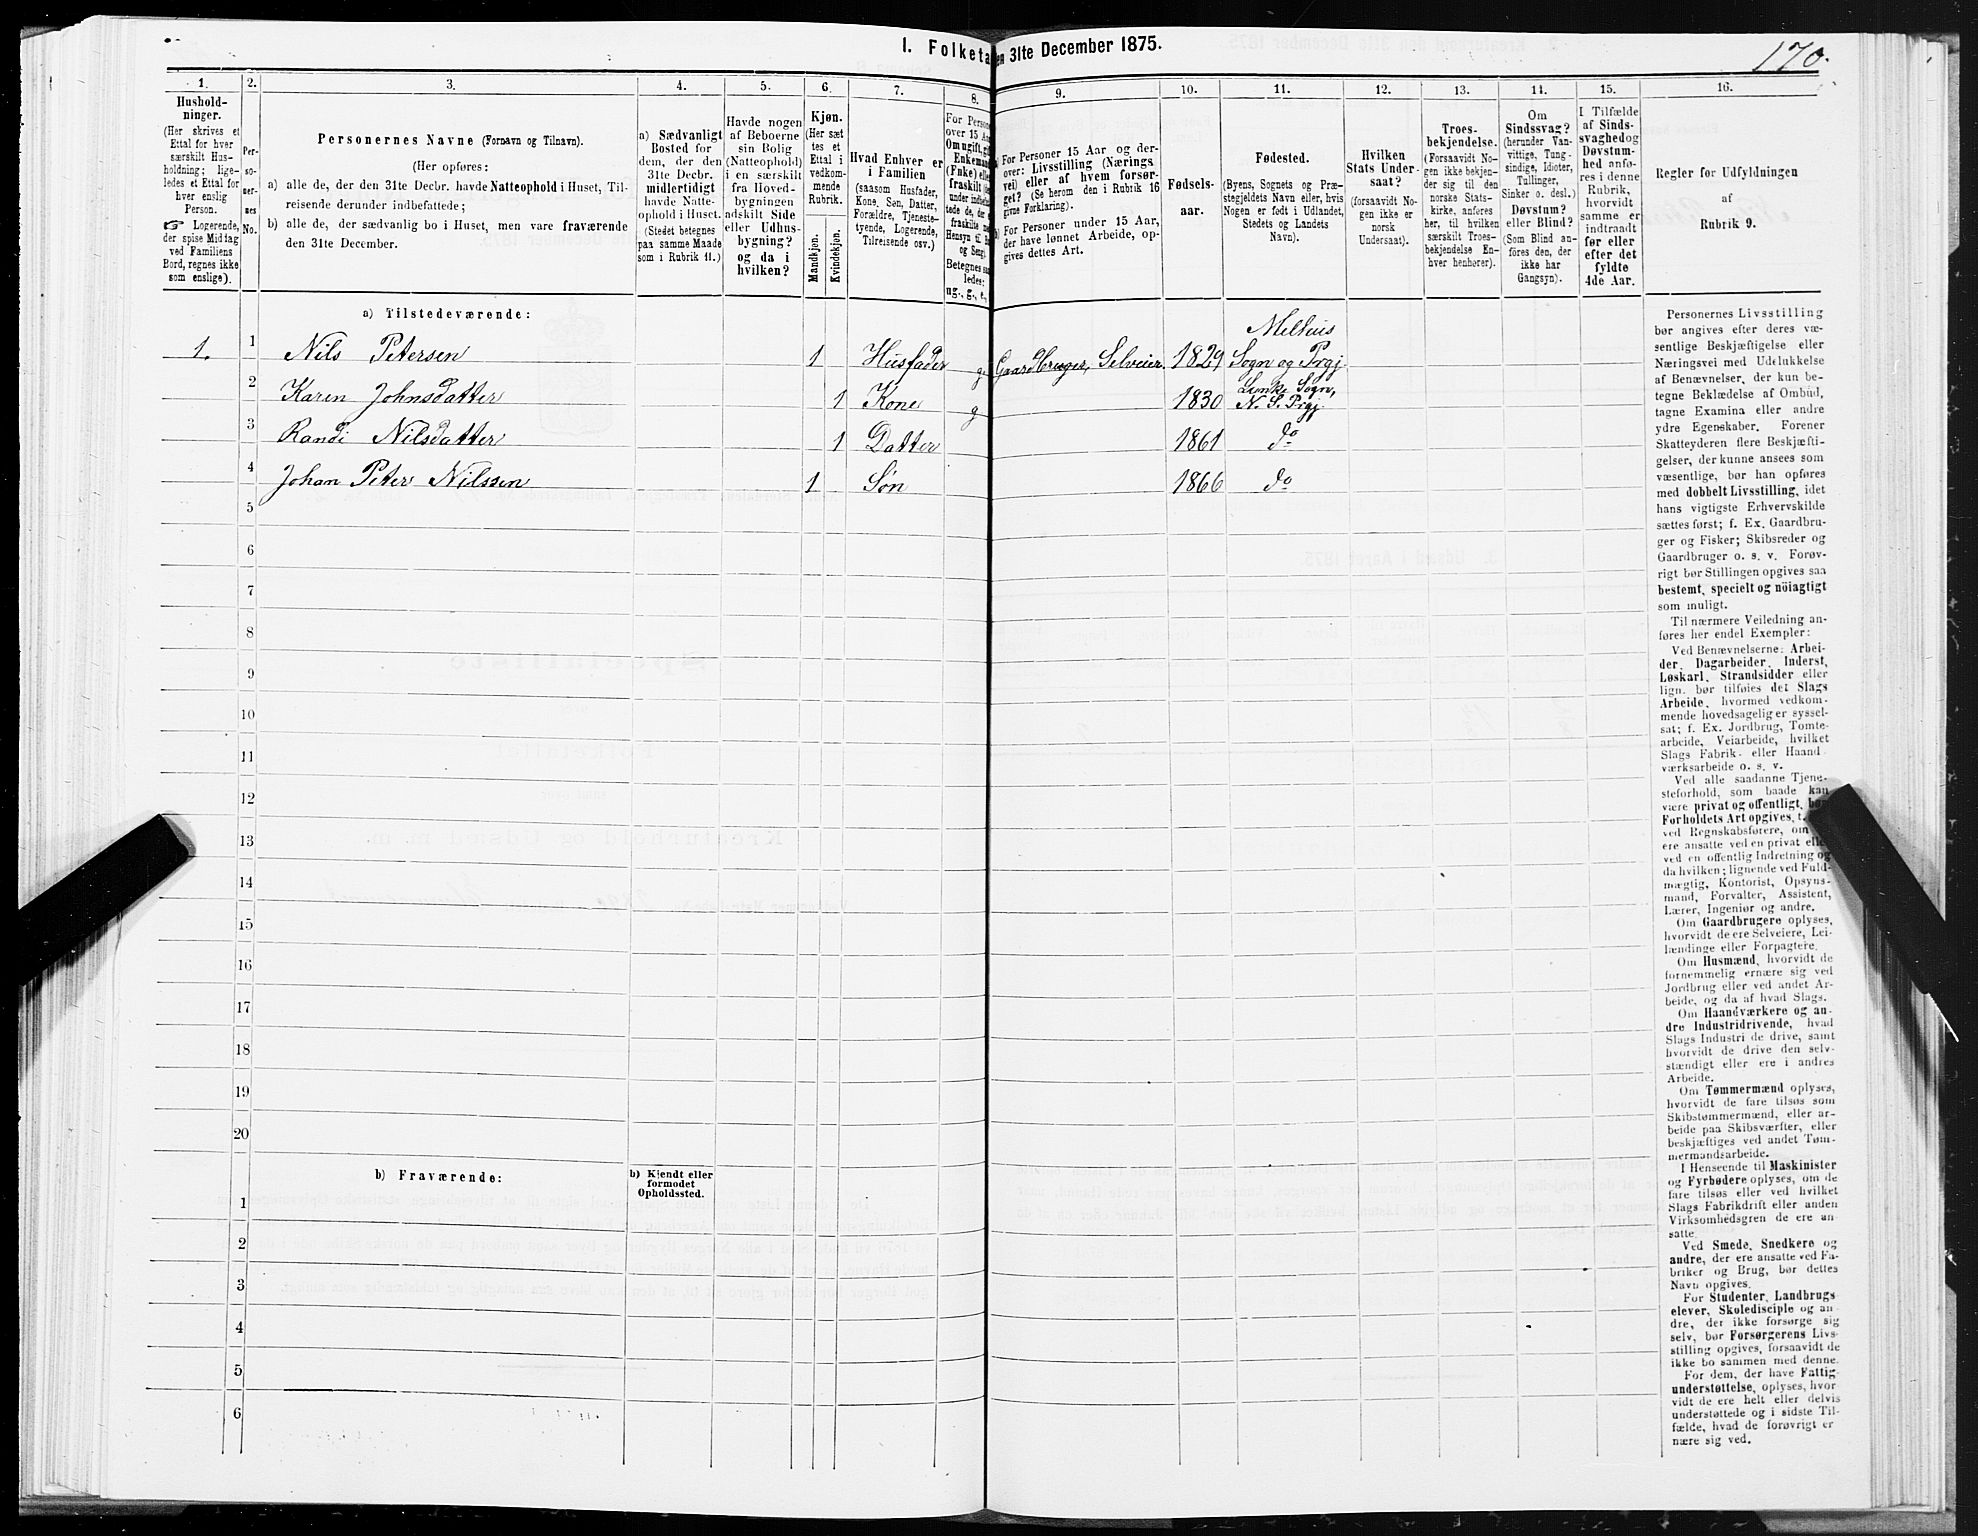 I. Folketa
en 31te December 1875.
170.
1.
2.
3.
4.
5.
6.
7.
8.
9.
10.
11.
12.
13.
14.
15.
16.
Hushold-
ninger.
(Her skrives et
Ettal for hver
særskilt Hus-
holdning; lige-
ledes et Ettal for
hver enslig
Person.
☞ Logerende,
der spise Middag
ved Familiens
Bord, regnes ikke
som enslige).
Per-
so-
ner-
nes
No.
Personernes Navne (Fornavn og Tilnavn).
(Her opføres:
a) alle de, der den 31te Decbr. havde Natteophold i Huset, Til-
reisende derunder indbefattede;
b) alle de, der sædvanlig bo i Huset, men vare fraværende
den 31te December.
a) Sædvanligt
Bosted for
dem, der den
31te Decbr.
midlertidigt
havde Natte-
ophold i Huset.
(Stedet betegnes
paa samme Maade
som i Rubrik 11.)
Havde nogen
af Beboerne
sin Bolig
(Natteophold)
i en særskilt
fra Hoved-
bygningen
adskilt Side
eller Udhus-
bygning?
og da i
hvilken?
Kjøn.
(Her sæt
tes et
Ettal i
vedkom-
mende
Rubrik.
Mandkjøn.
Kvindekjøn.
Hvad Enhver er
i Familien
(saasom Husfader,
Kone, Søn, Datter,
Forældre, Tjeneste-
tyende, Logerende,
Tilreisende osv.)
For Persone
over 15 Aa
Om ugift, gif
Enkeman
(Enke) elle
fraskilt
under indbefa
tede de, der
fraskilte m
Hensyn til B
og Seng
Betegnes saa
ledes:
ug., g., e.,
a) For Personer 15 Aar og der-
over: Livsstilling (Nærings
vei) eller af hvem forsør-
get? (Se herom den i Rubrik 16
givne Forklaring).
b) For Personer under 15 Aar,
der have lønnet Arbeide, op-
gives dettes Art.
Fødsels-
aar.
Fødested.
(Byens, Sognets og Præ-
stegjeldets Navn eller, hvis
Nogen er født i Udlandet,
Stedets og Landets
Navn).
Hvilken
Stats Under-
saat?
(forsaavidt No-
gen ikke er
norsk
Undersaat).
Troes-
bekjendelse.
(Forsaavidt No-
gen ikke bekjen-
der sig til den
norske Stats-
kirke, anføres
her, til hvilken
særskilt Troes-
bekjendelse En-
hver henhører).
Om
Sindssvag?
(herunder Van-
vittige, Tung-
sindige, Idioter,
Tullinger,
Sinker o. desl.)
Døvstum?
eller Blind?
(Som Blind an-
føres den, der
ikke har
Gangsyn).
I Tilfælde
af Sinds-
svaghed og
Døvstum-
hed anfø-
res i denne
Rubrik,
hvorvidt
samme er
indtraadt
før eller
efter det
fyldte
4de Aar.
Regler for Udfyldningen
af
Rubrik 9.
a) Tilstedeværende:
1. 1 Nils Petersen 1 Husfader g Gaardbruger, Selveier. 1829 Melhus Sogn og Prgj.
2 Karen Johnsdatter 1 Kone g 1830 Sogn, N. S. Prgj.
3 Randi Nilsdatter 1 Datter 1861 do
4 Johan Peter Nilssen 1 Søn 1866 do
5
6
7
8
9
10
11
12
13
14
15
16
17
18
19
20
b) Fraværende:
b) Kjendt eller
formodet
Opholdssted.
1
2
3
4
5
6
Personernes Livsstilling
bør angives efter deres væ-
sentlige Beskjæftigelse eller
Næringsvei med Udelukkelse
af Benævnelser, der kun be-
tegne Beklædelse af Ombud,
tagne Examina eller andre
ydre Egenskaber. Forener
Skatteyderen flere Beskjæfti-
gelser, der kunne ansees som
væsentlige, bør han opføres
med dobbelt Livsstilling, idet
hans vigtigste Erhvervskilde
sættes først; f. Ex. Gaardbru-
ger og Fisker; Skibsreder og
Gaardbruger o. s. v. Forøv-
rigt bør Stillingen opgives saa
bestemt, specielt og nöiagtigt
som muligt.
Til nærmere Veiledning an-
føres her endel Exempler:
Ved Benævnelserne: Arbei-
der, Dagarbeider, Inderst,
Løskarl, Strandsidder eller
lign. bør tilføies det Slags
Arbeide, hvormed vedkom-
mende hovedsagelig er syssel-
sat; f. Ex. Jordbrug, Tomte-
arbeide, Veiarbeide, hvilket
Slags Fabrik- eller Haand-
værksarbeide o. s. v.
Ved alle saadanne Tjene-
steforhold, som baade kan
være privat og offentligt, bør
Forholdets Art opgives, t.
ved Regnskabsførere, om
ere ansatte ved en privat elle
ved en offentlig Indretning og
da hvilken; lignende ved Fuld-
mægtig, Kontorist, Opsyns-
mand, Forvalter, Assistent,
Lærer, Ingeniør og andre.
Om Gaardbrugere oplyses,
hvorvidt de ere Selveiere, Lei-
lændinge eller Forpagtere.
Om Husmænd, hvorvidt de
fornemmelig ernære sig ved
Jordbrug eller ved andet Ar-
beide, og da af hvad Slags.
Om Haandværkere og an-
dre Industridrivende, hvad
Slags Industri de drive, samt
hvorvidt de drive den selv-
stændigt eller ere i andres
Arbeide.
Om Tømmermænd oplyses,
hvorvidt de fare tilsøs som
Skibstømmermænd, eller ar-
beide paa Skibsværfter, eller
beskjæftiges ved andet Tøm-
mermandsarbeide.
I Henseende til Maskinister
og Fyrbødere oplyses, om de
fare tilsøs eller ved hvilket
Slags Fabrikdrift eller anden
Virksomhedsgren de ere an-
satte.
Ved Smede, Snedkere og
andre, der ere ansatte ved Fa-
briker og Brug, bør dettes
Navn opgives.
For Studenter, Landbrugs
elever, Skoledisciple og an-
dre, der ikke forsørge sig
selv, bør Forsørgerens Livs-
stilling opgives, forsaavidt de
ikke bo sammen med denne.
For dem, der have Fattig
understøttelse, oplyses, hvor
vidt de ere helt eller delvis
understøttede og i sidste Til-
fælde, hvad de forøvrigt er
nære sig ved.